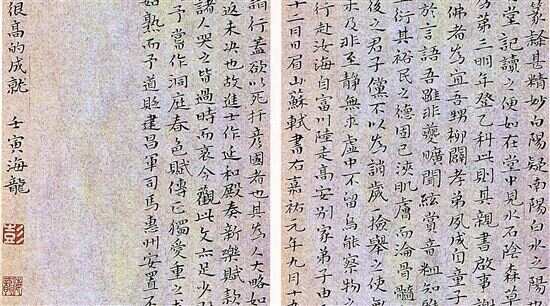 篆隸甚精妙白陽疑南陽白水之陽
堂記讀之便如在堂中見水石陰森
佛者為宜吾甥柳闢孝弟夙成自童
第三明年登乙科此則其親書啟事
於言語吾雖非夔曠聞絃賞音粗知
衍其裕民之德固已浹肌膚而淪骨髓
後之君子儻不以為誚歲一檢舉之使
求及非至靜無求虛中不留烏能察物
行赴汝海自富川陸走高安別家弟子由
十二月日眉山蘇軾書右嘉祐元年九月十
請行蓋欲以死扞彥國者也其為人大略如
返未決也故進士作延和殿奏新樂賦款
諸人哭之皆過時而哀今觀此文足少
予嘗作洞庭春色賦傳正獨愛重之
如熟而予道貶建昌軍司馬惠州安置不
很高的成就 壬寅海龍
彭